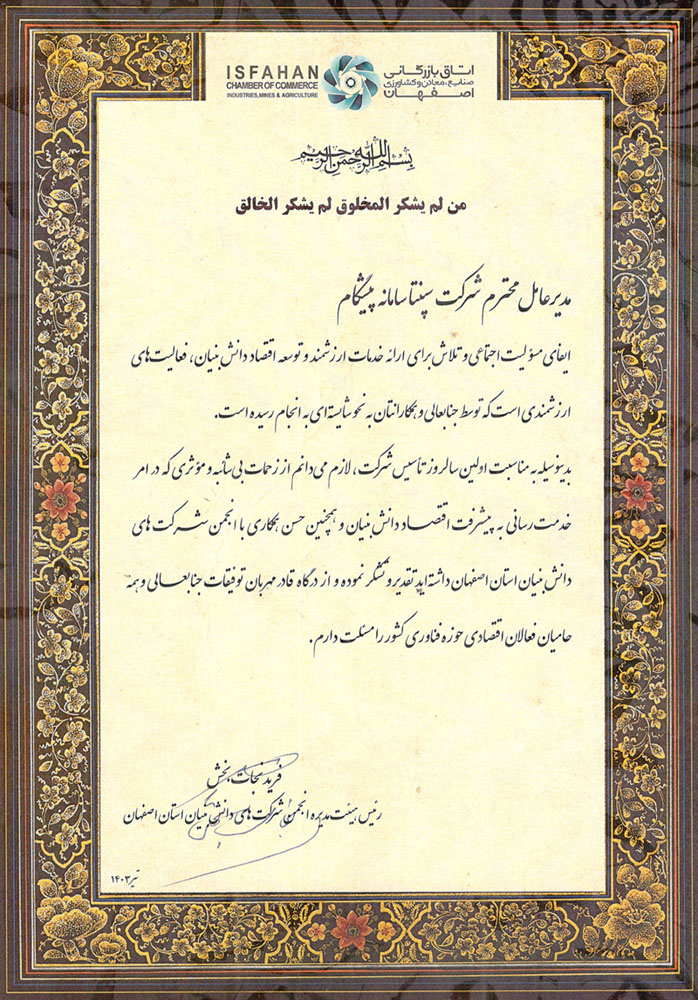 ISFAHAN
CHAMBER OF COMMERCE
INDUSTRIES, MINES & AGRICULTURE
اتاق بازرگانی
صنایع، معادن و کشاورزی
اصفهان
بسم الله الرحمن الرحیم
من لم یشکر المخلوق لم یشکر الخالق
مدیرعامل محترم شرکت سپنتا سامانه پیشگام
ایفای مسؤلیت اجتماعی و تلاش برای ارائه خدمات ارزشمند و توسعه اقتصاد دانش بنیان، فعالیت‌های
ارزشمندی است که توسط جنابعالی و همکارانتان به نحو شایسته‌ای به انجام رسیده است.
بدینوسیله به مناسبت اولین سالروز تأسیس شرکت، لازم می‌دانم از زحمات بی‌شائبه و مؤثری که در امر
خدمت رسانی به پیشرفت اقتصاد دانش بنیان و همچنین حسن همکاری با انجمن شرکت های
دانش بنیان استان اصفهان داشته‌اید تقدیر و تشکر نموده و از درگاه قادر مهربان توفیقات جنابعالی و همه
حامیان فعالان اقتصادی حوزه فناوری کشور را مسئلت دارم.
فرید نجات بخش
رئیس هیئت مدیره انجمن شرکت های دانش بنیان استان اصفهان
تیر ۱۴۰۳